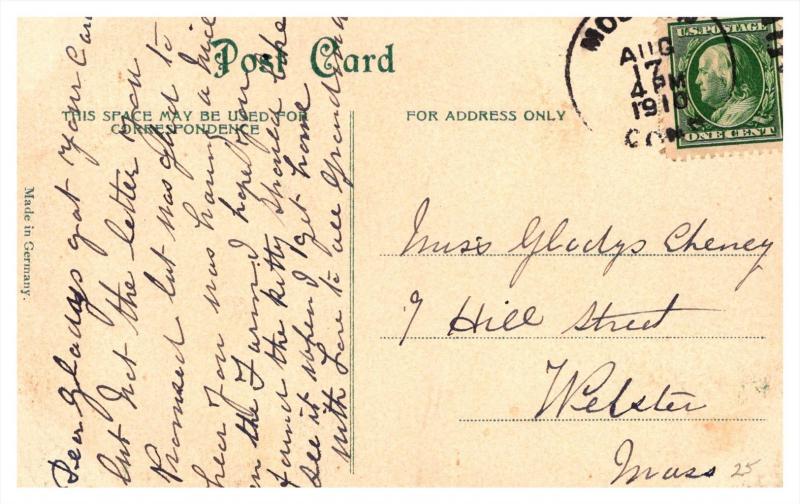 Post Card
THIS SPACE MAY BE USED FOR
CORRESPONDENCE
FOR ADDRESS ONLY
Made in Germany.
U.S. POSTAGE
ONE CENT
AUG
17
4 PM
1910
CONN
Dear Gladys got your Card
but not the letter you
Promised but was glad to
hear you was having a nice
on the Farm I hope you
found the kitty should like
see it when I get home
with love to all Grandma
Miss Gladys Cheney
9 Hill Street
Webster
Mass
25